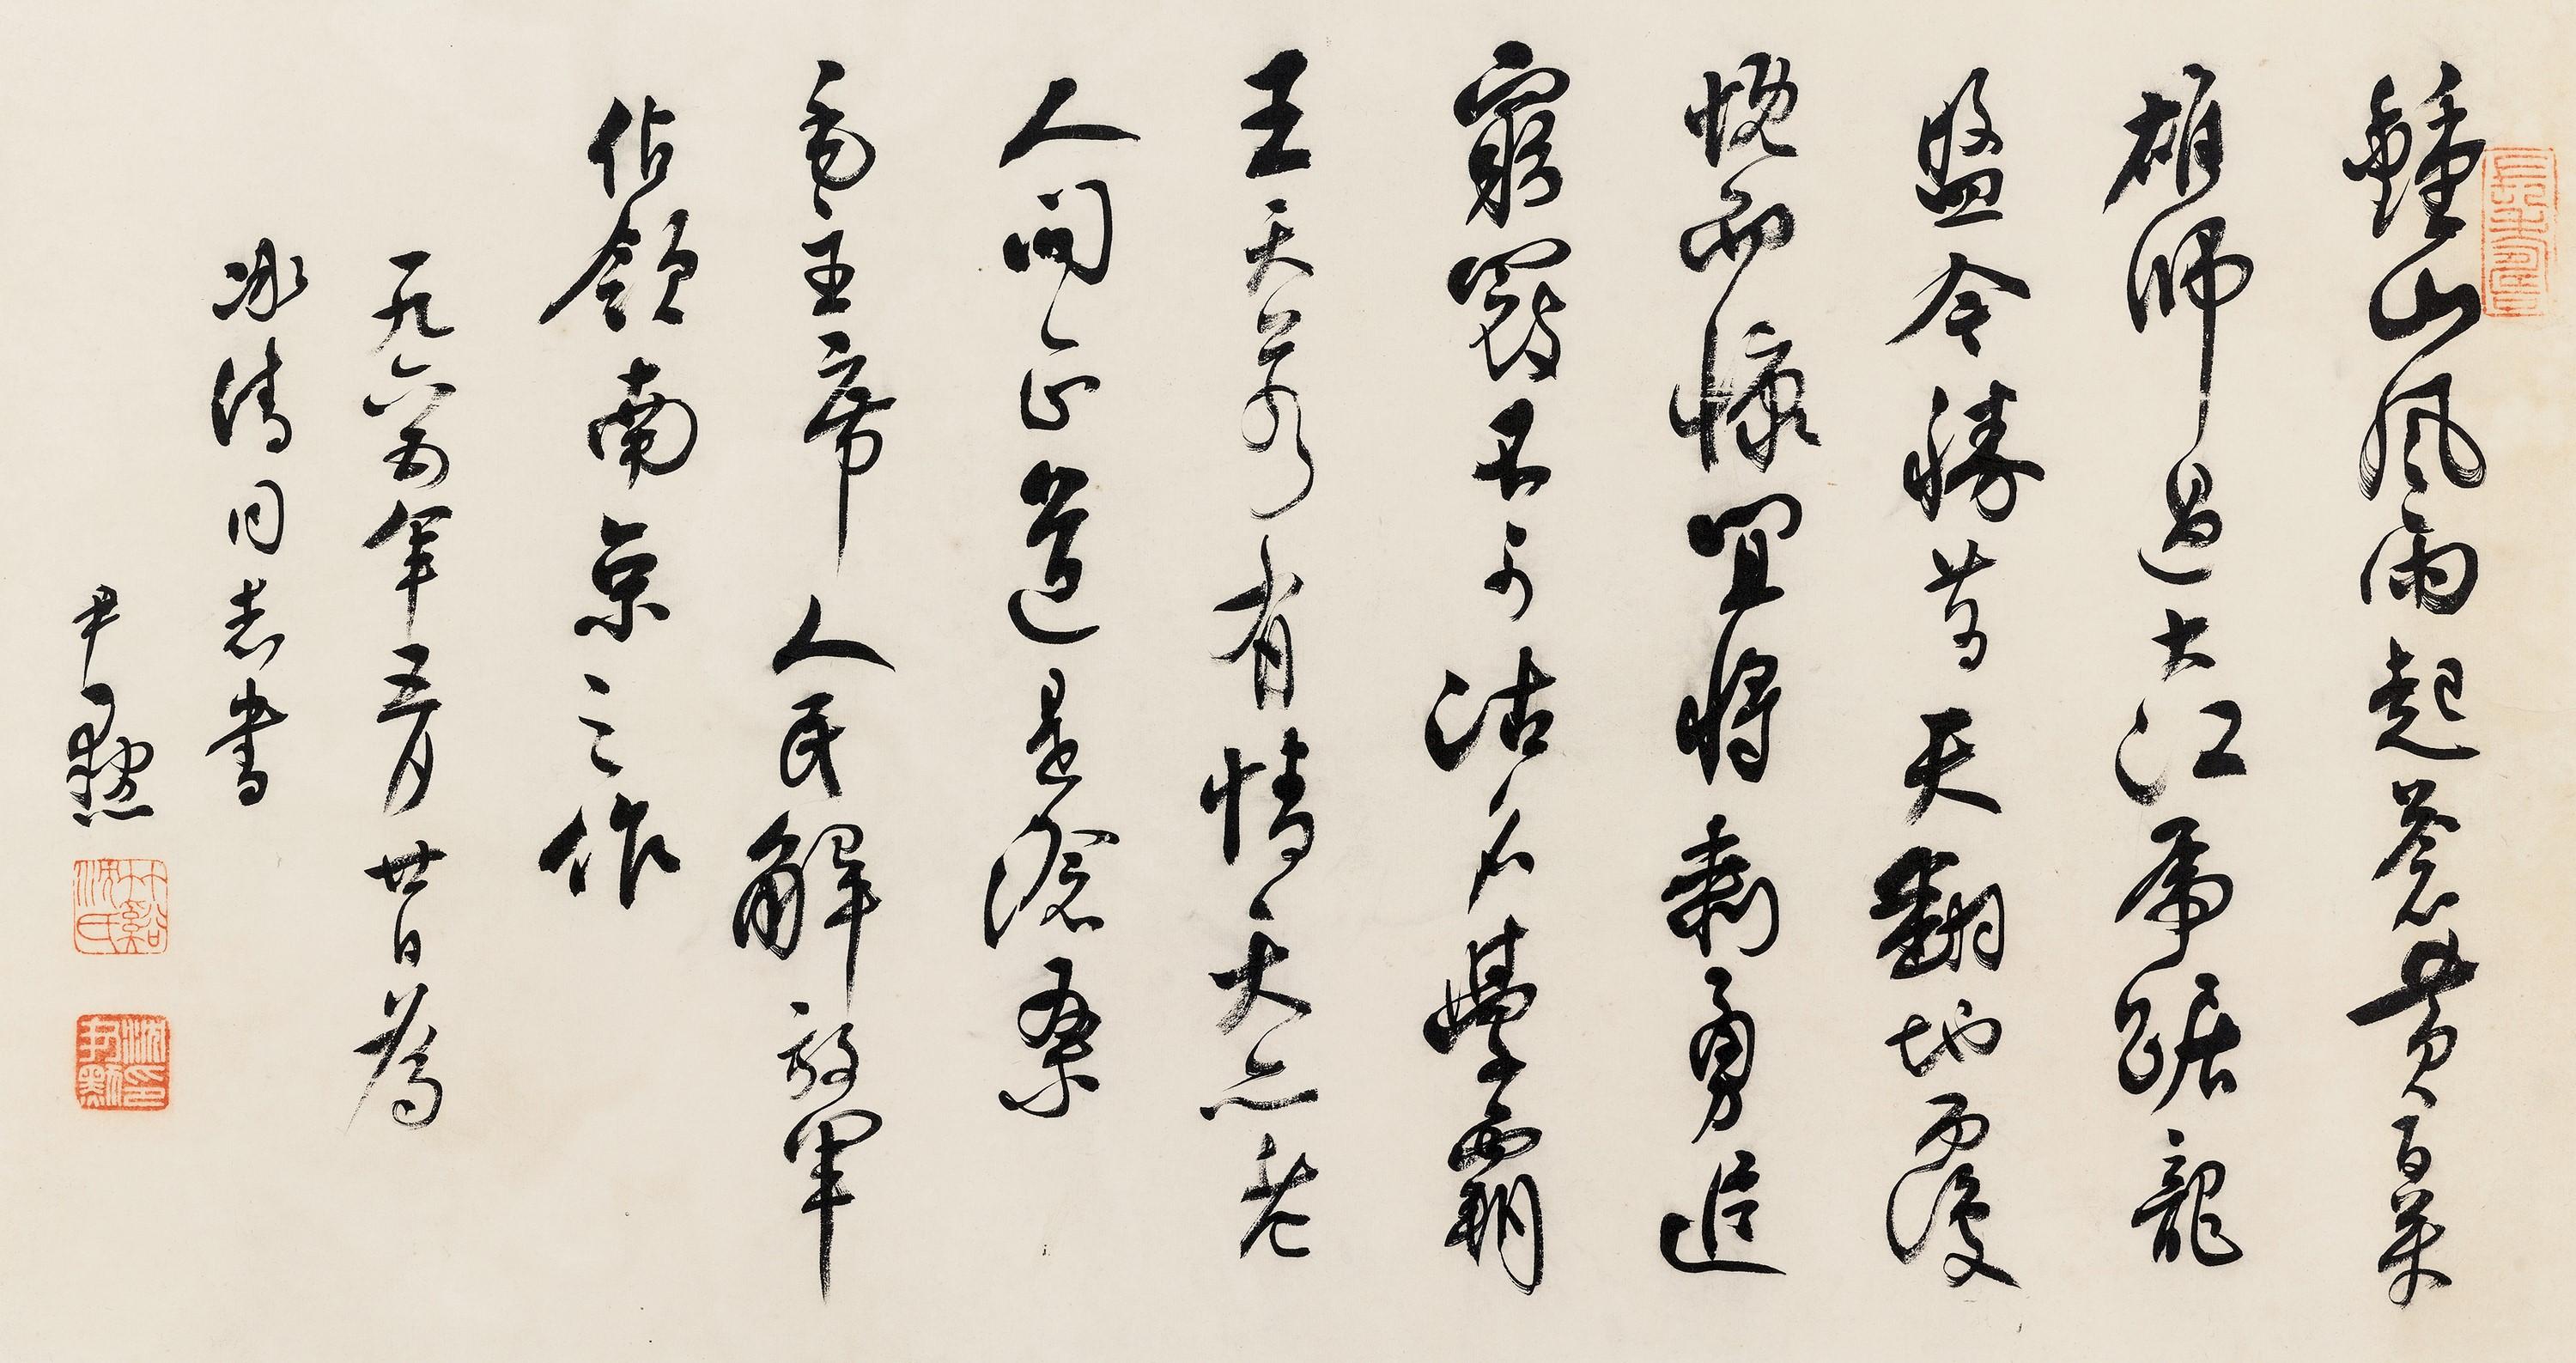 鍾山風雨起蒼黄百萬
雄師過大江虎踞龍
盤今勝昔天翻地覆
慨而慷宜將剩勇追
窮寇不可沽名學霸
王天若有情天亦老
人間正道是滄桑
毛主席人民解放軍
佔領南京之作
一九六五年五月廿日為
冰清同志書
尹默
竹谿沈氏
沈尹默印